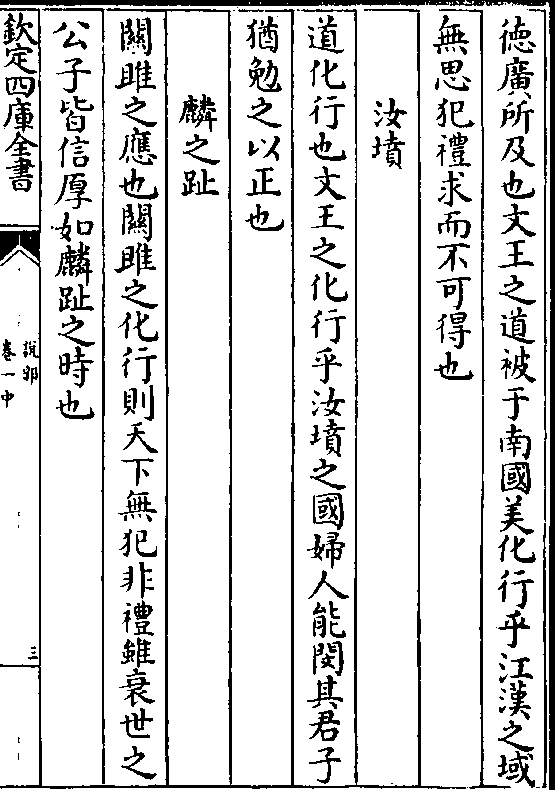 徳廣所及也文王之道被于南國美化行乎江漢之域
無思犯禮求而不可得也
汝墳
道化行也文王之化行乎汝墳之國婦人能閔其君子
猶勉之以正也
麟之趾
關雎之應也關雎之化行則天下無犯非禮雖衰世之
公子皆信厚如麟趾之時也
欽定四庫全書
說郛
卷一中
三